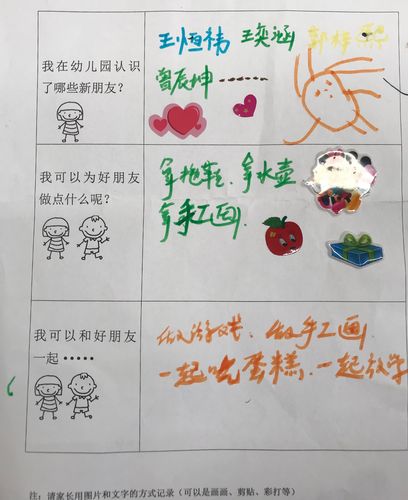 我在幼儿园认识
了哪些新朋友？
王恒祎 王奕涵 郭梓熙
曾辰坤------
我可以为好朋友
做点什么呢？
拿拖鞋、拿水壶
拿手工画.
我可以和好朋友
一起•••••
做游戏、做手工画.
一起吃蛋糕.一起放学
注：请家长用图片和文字的方式记录（可以是画画、剪贴、彩打等）